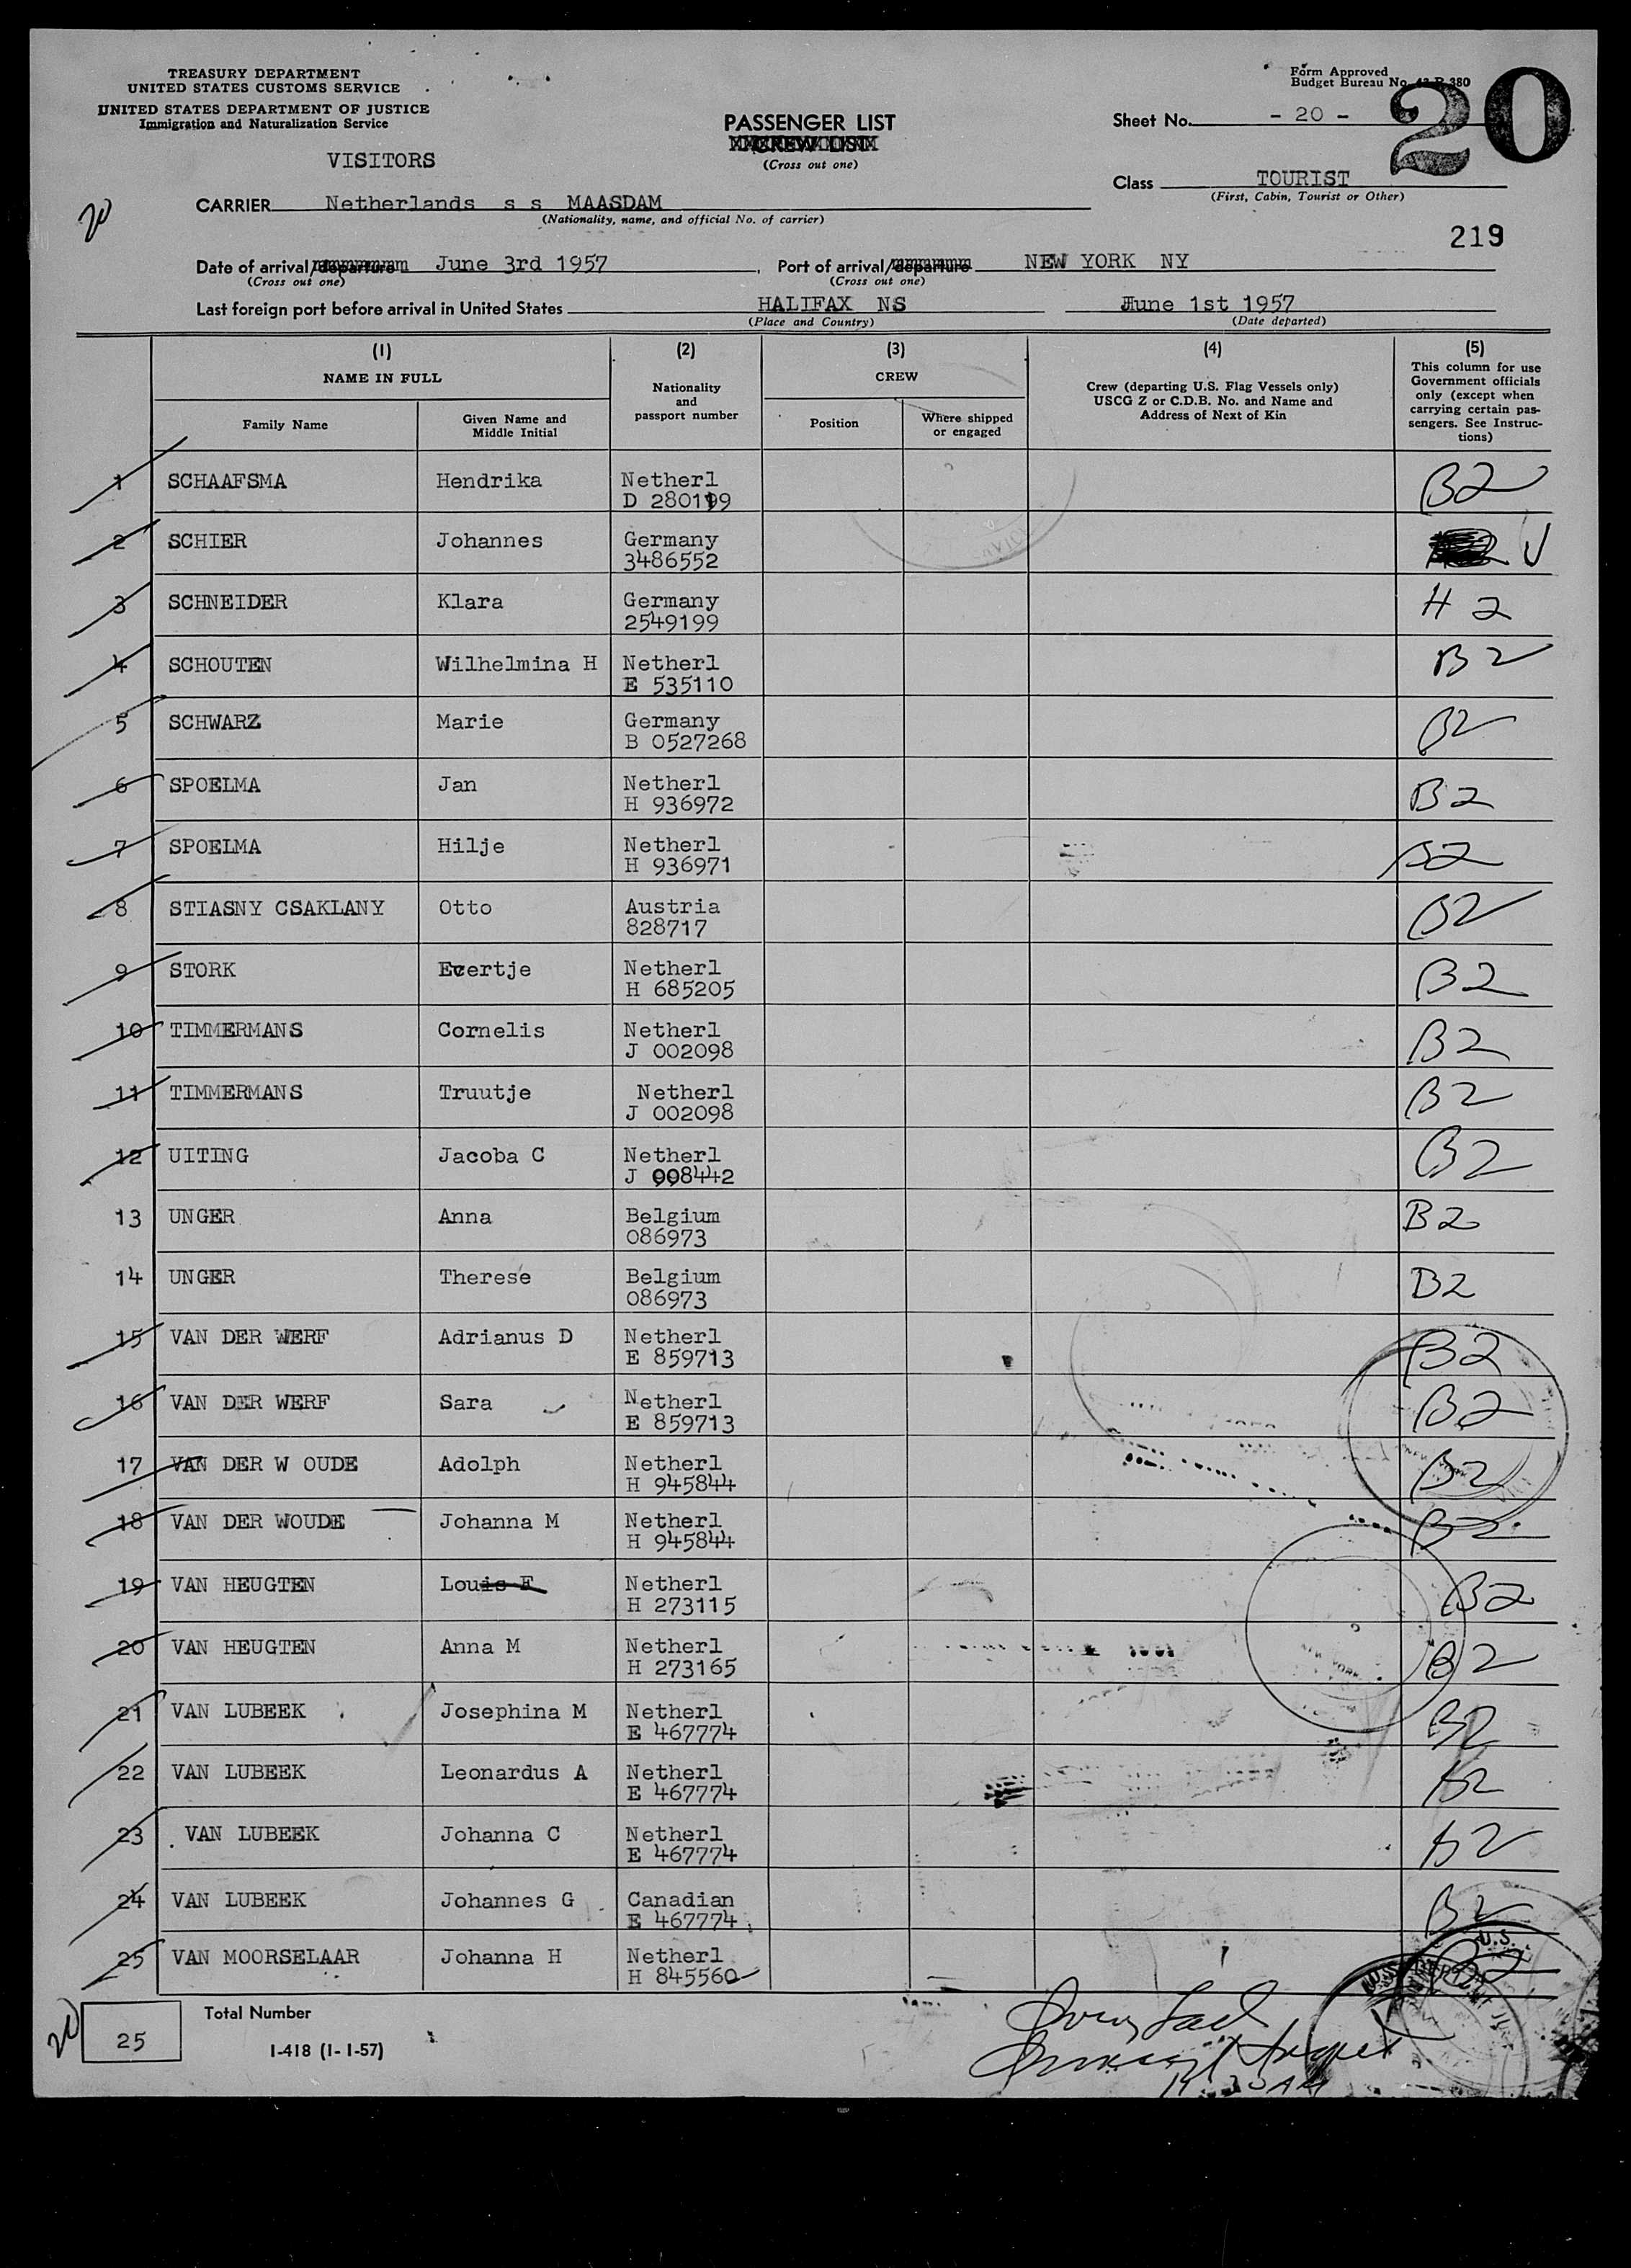 TREASURY DEPARTMENT
UNITED STATES CUSTOMS SERVICE
UNITED STATES DEPARTMENT OF JUSTICE
Immigration and Naturalization Service
VISITORS
PASSENGER LIST
CREW LIST
(Cross out one)
Form Approved
Budget Bureau No. 43-R 380
20
Sheet No. - 20 -
Class TOURIST
(First, Cabin, Tourist or Other)
20
CARRIER Netherlands s s MAASDAM
(Nationality, name, and official No. of carrier)
219
Date of arrival/departure June 3rd 1957, Port of arrival/departure NEW YORK NY
(Cross out one) (Cross out one)
Last foreign port before arrival in United States HALIFAX NS June 1st 1957
(Place and Country) (Date departed)
(1) NAME IN FULL
Family Name
Given Name and Middle Initial
(2) Nationality and passport number
(3) CREW
Position
Where shipped or engaged
(4) Crew (departing U.S. Flag Vessels only) USCG Z or C.D.B. No. and Name and Address of Next of Kin
(5) This column for use Government officials only (except when carrying certain passengers. See Instructions)
1 SCHAAFSMA Hendrika Netherl D 280199 B2
2 SCHIER Johannes Germany 3486552
3 SCHNEIDER Klara Germany 2549199 H 2
4 SCHOUTEN Wilhelmina H Netherl E 535110 B2
5 SCHWARZ Marie Germany B 0527268 B2
6 SPOELMA Jan Netherl H 936972 B2
7 SPOELMA Hilje Netherl H 936971 B2
8 STIASNY CSAKLANY Otto Austria 828717 B2
9 STORK Evertje Netherl H 685205 B2
10 TIMMERMANS Cornelis Netherl J 002098 B2
11 TIMMERMANS Truutje Netherl J 002098 B2
12 UITING Jacoba C Netherl J 008442 B2
13 UNGER Anna Belgium 086973 B2
14 UNGER Therese Belgium 086973 B2
15 VAN DER WERF Adrianus D Netherl E 859713 B2
16 VAN DER WERF Sara Netherl E 859713 B2
17 VAN DER W OUDE Adolph Netherl H 945844 B2
18 VAN DER WOUDE Johanna M Netherl H 945844 B2
19 VAN HEUGTEN Louis F Netherl H 273115 B2
20 VAN HEUGTEN Anna M Netherl H 273165 B2
21 VAN LUBEEK Josephina M Netherl E 467774 B2
22 VAN LUBEEK Leonardus A Netherl E 467774 B2
23 VAN LUBEEK Johanna C Netherl E 467774 B2
24 VAN LUBEEK Johannes G Canadian E 467774 B2
25 VAN MOORSELAAR Johanna H Netherl H 845560 B2
20
25
Total Number
I-418 (1-1-57)